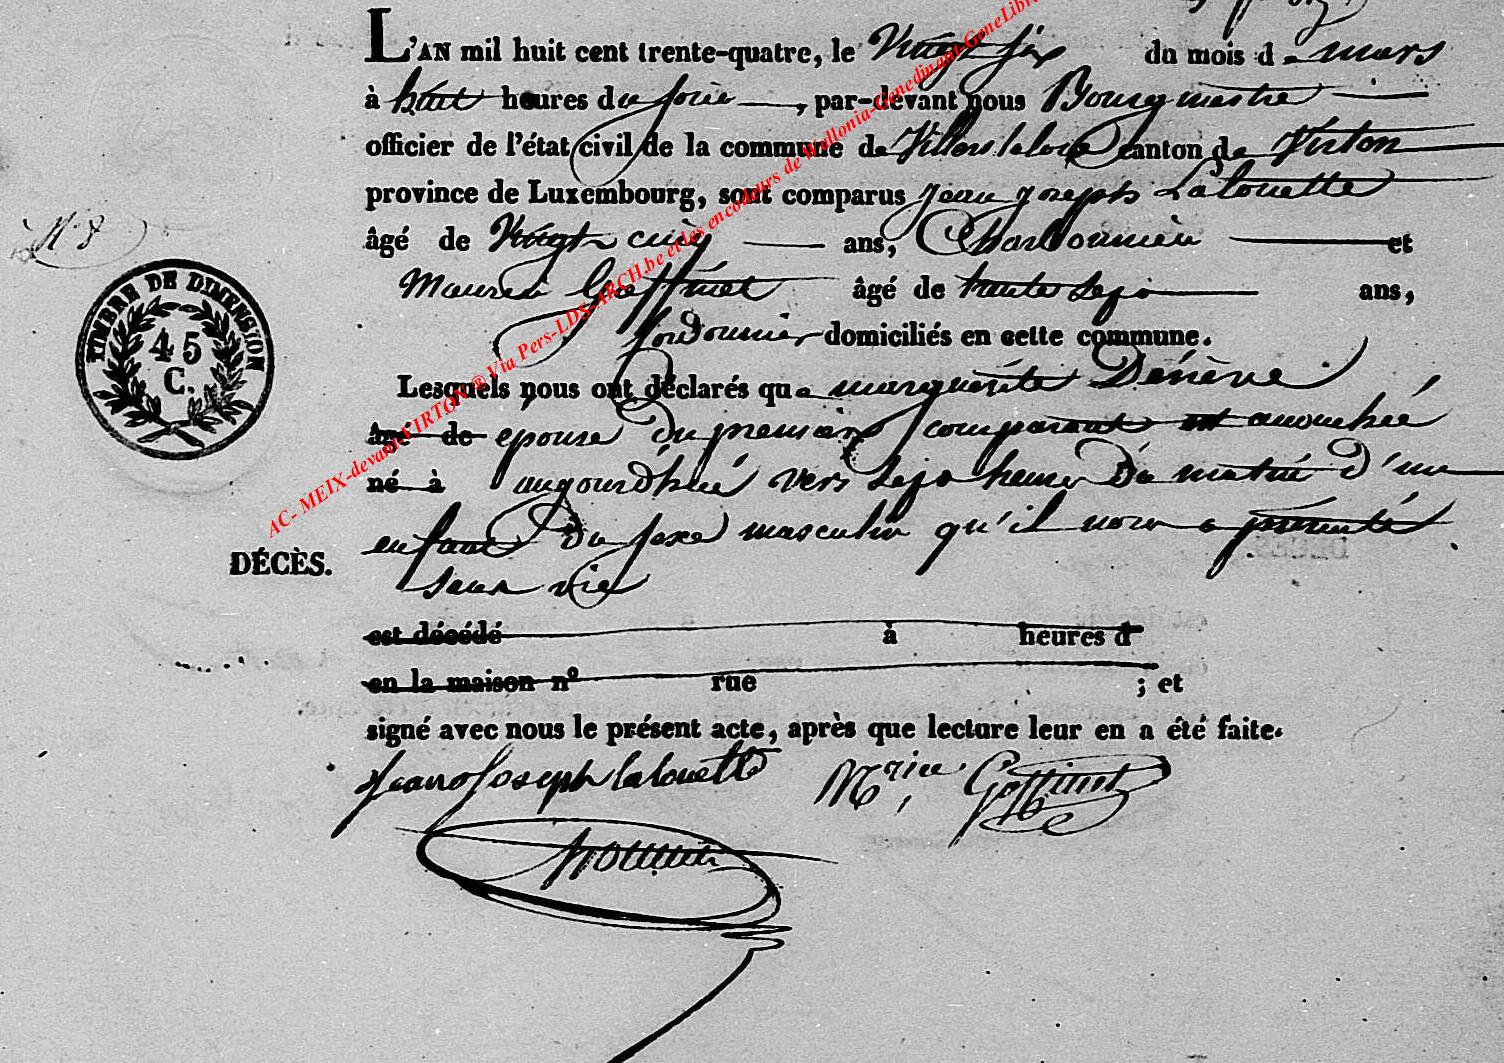 L'AN mil huit cent trente-quatre, le vingt six du mois de mars
à huit heures du soir, par-devant nous Bourgmestre
officier de l'état civil de la commune de Villers la loue canton de Virton
province de Luxembourg, sont comparus Jean Joseph Lalouette
N° 8
âgé de vingt cinq ans, Charbonnier et
Maurice Goffinet âgé de trente sept ans,
Cordonnier domiciliés en cette commune.
Lesquels nous ont déclarés que marguerite Denève
âgé de epouse du premier comparant est accouchée
né à aujourd'hui vers sept heures du matin d'un
enfant du sexe masculin qu'il nous a présenté
DÉCÈS.
sans vie
est décédé à heures d
en la maison n° rue ; et
signé avec nous le présent acte, après que lecture leur en a été faite.
Jean Joseph lalouette Mrice Goffinet
TIMBRE DE DIMENSION
45
C.
AC- MEIX-devant-VIRTON ® Via Pers-LDS-ARCH.be et les encodeurs de Wallonia-Genedinant-GeneLibr